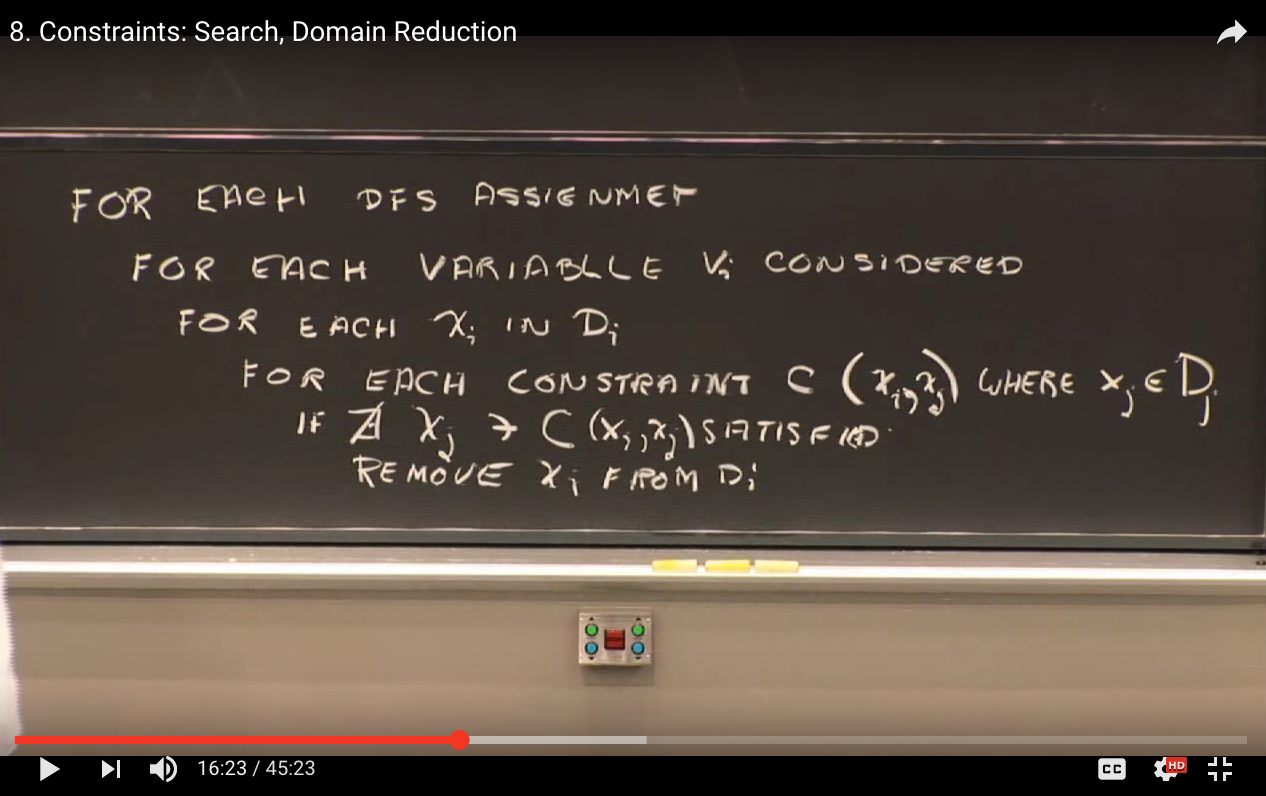 8. Constraints: Search, Domain Reduction
FOR EACH DFS ASSIGNMET
FOR EACH VARIABLLE Vi CONSIDERED
FOR EACH Xi IN Di
FOR EACH CONSTRAINT C (xi, xj) WHERE xj ∈ Dj
IF ∄ Xj ∋ C (xi, xj) SATISFIED
REMOVE Xi FROM Di
16:23 / 45:23
CC
HD